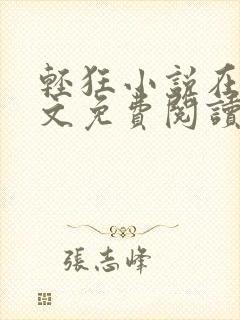 輕狂小說在
文免費閱讀
張志峰